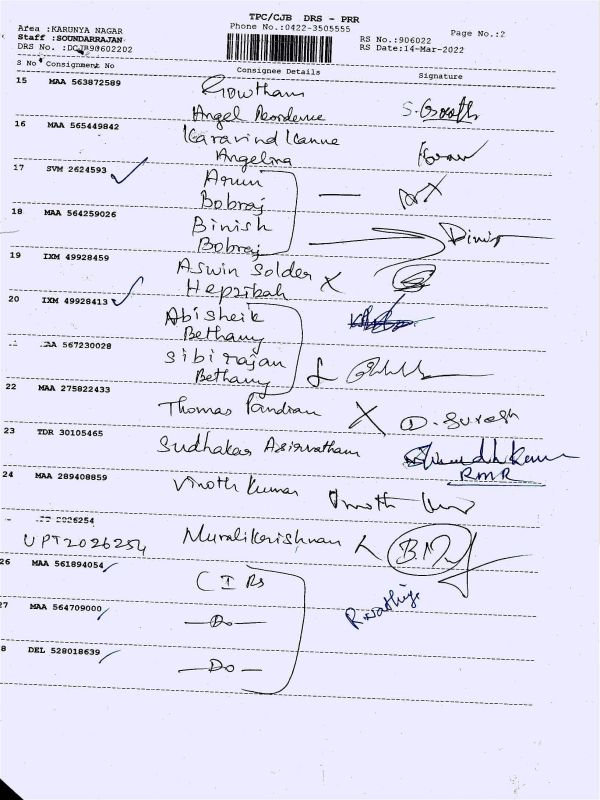 TPC/CJB DRS - PRR
Area :KARUNYA NAGAR
Phone No.:0422-3505555
Page No.:2
Staff :SOUNDARRAJAN
RS No.:906022
DRS No. :DCJB90602202
RS Date:14-Mar-2022
S No Consignment No Consignee Details Signature
15 MAA 563872589 Gowtham
Angel
16 MAA 565449842
Angelina
17 SVM 2624593 Arun
Bobraj
18 MAA 564259026 Binish
Bobraj
19 IXM 49928459 Aswin Solder X
Hepzibah
20 IXM 49928413 Abisheik
Bethany
AA 567230028 Sibirajan
Bethany
22 MAA 275822433 Thomas Pandian X D. Suresh
23 TDR 30105465 Sudhakar Asirvatham
RMR
24 MAA 289408859 Vinoth Kumar Vinoth
2026254
UPT2026254 Muralikrishnan
26 MAA 561894054 C I Rs
27 MAA 564709000 —Do—
8 DEL 528018639 —Do—